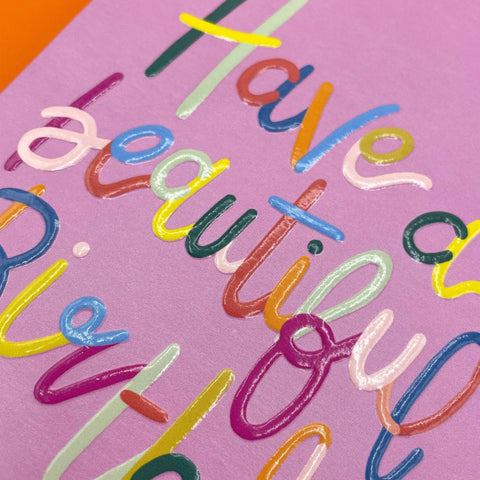 Have a
beautiful
Birth